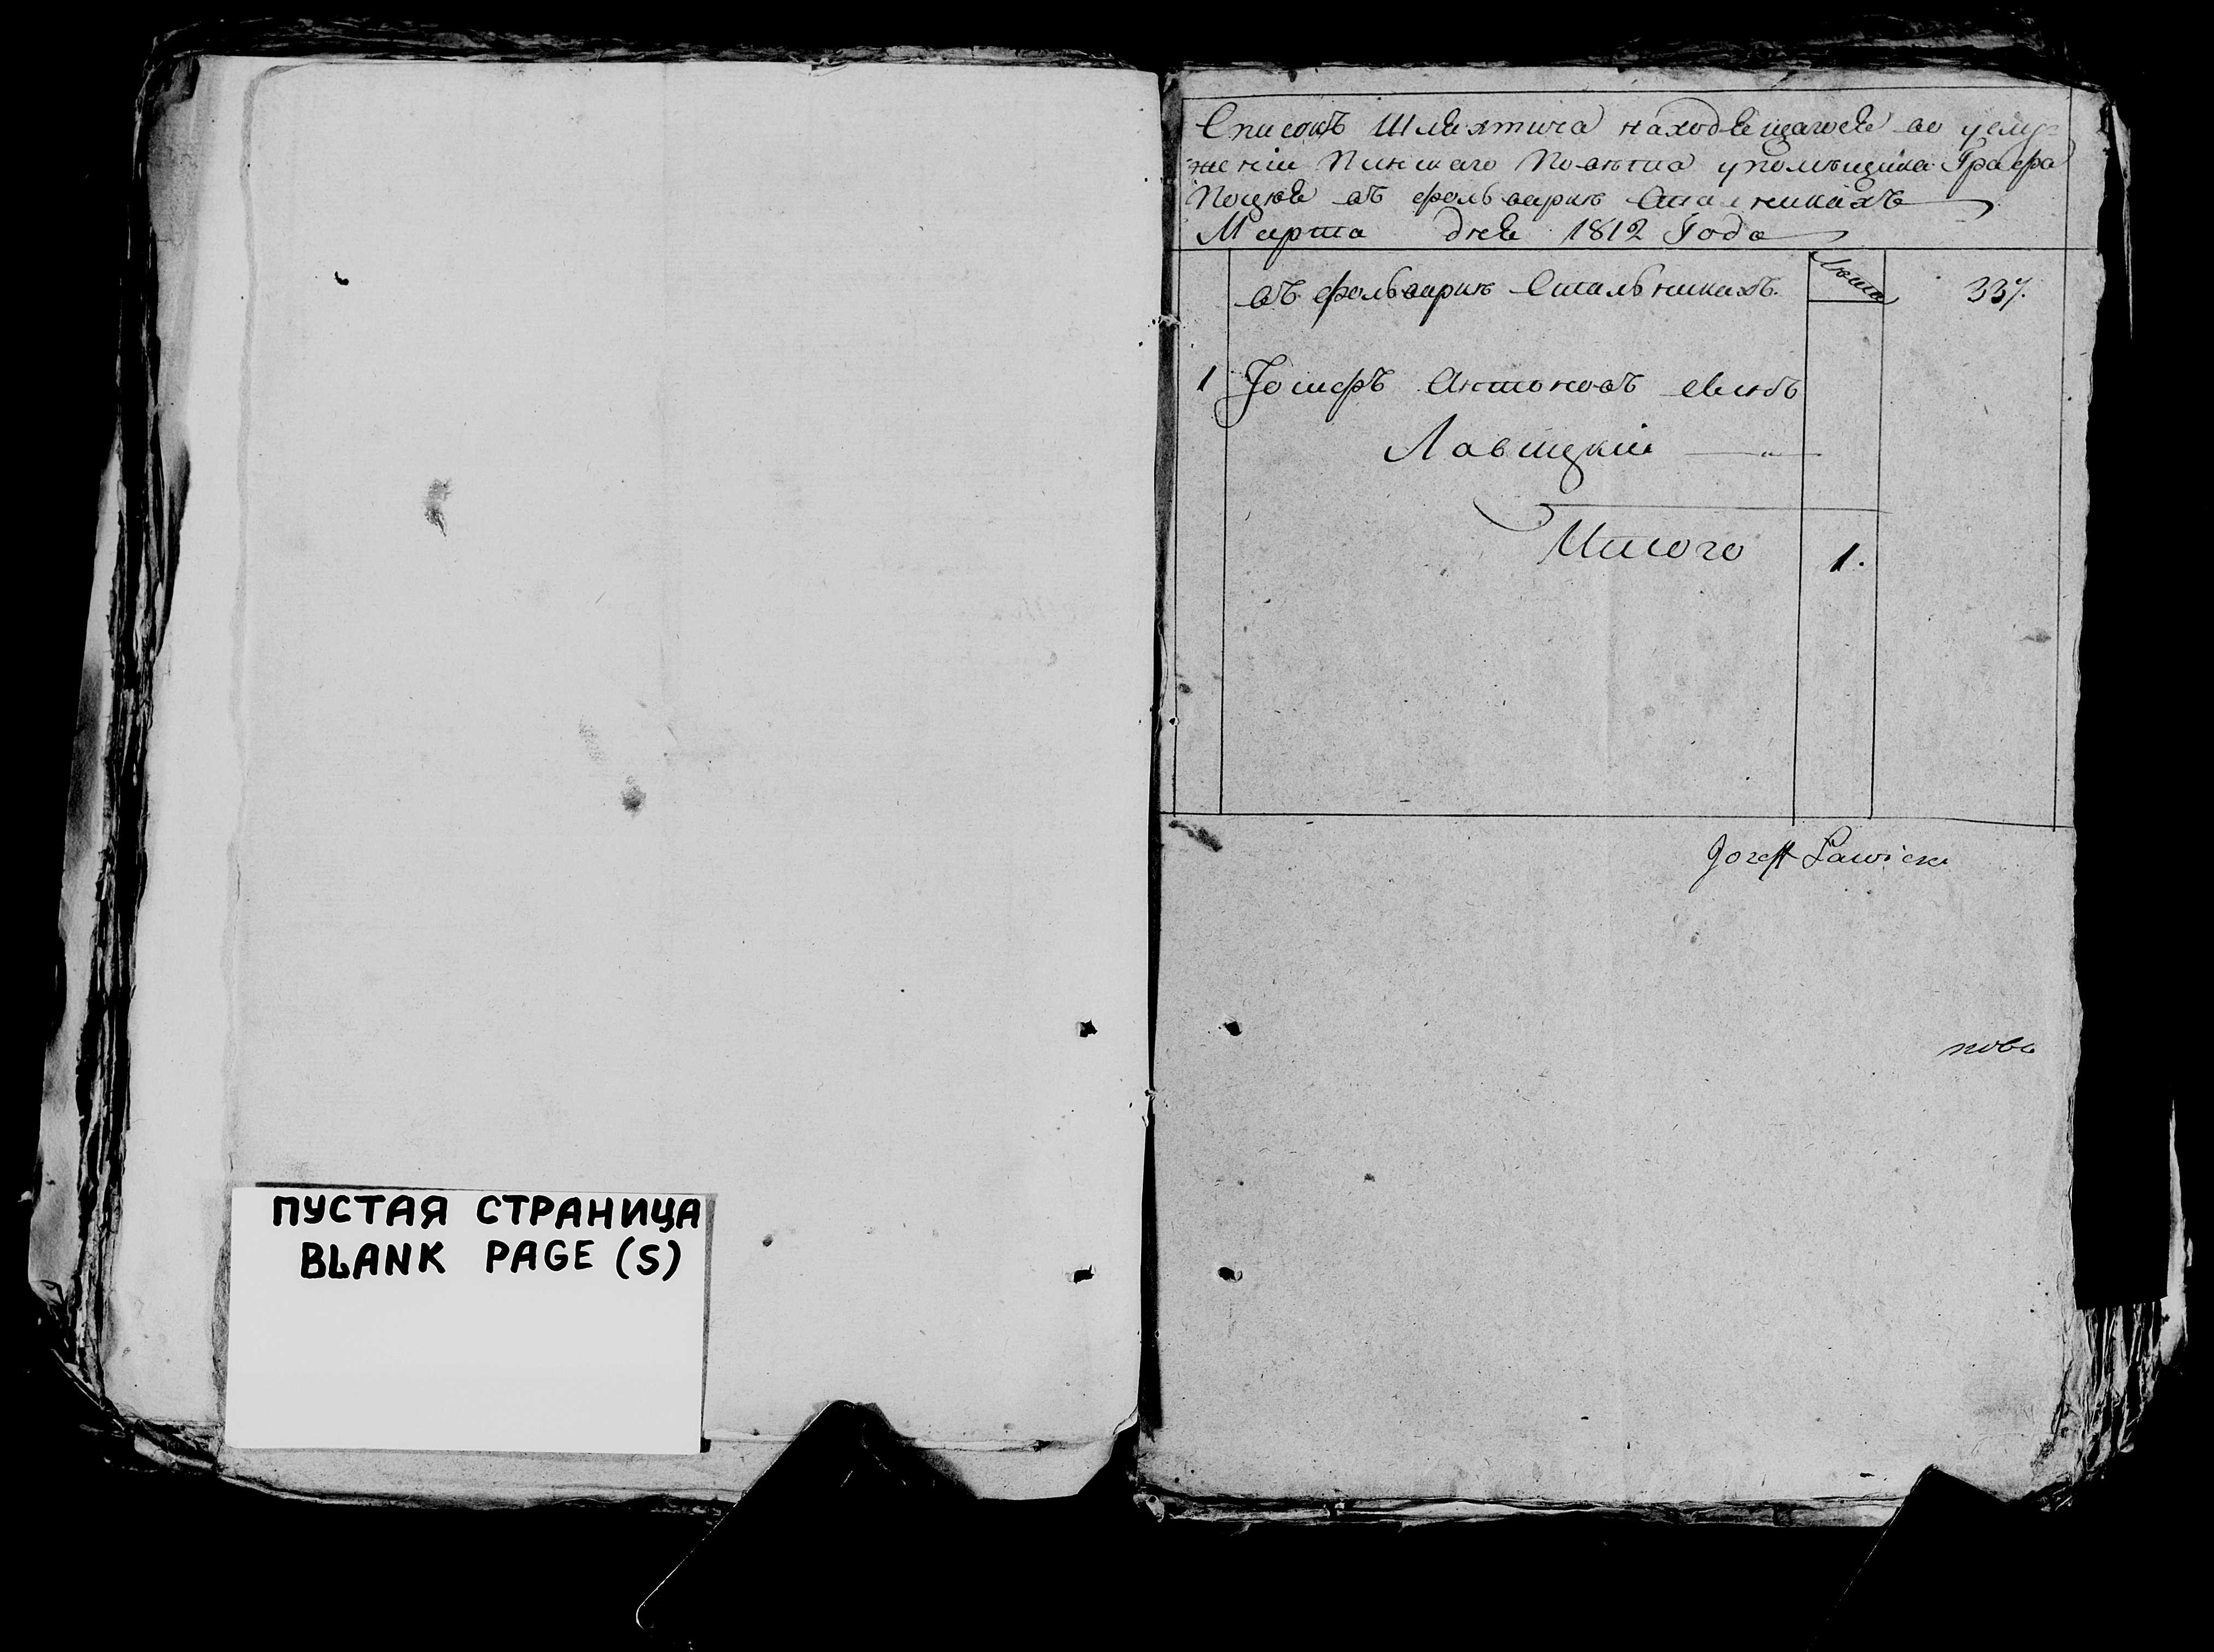 ПУСТАЯ СТРАНИЦА
BLANK PAGE (S)
Списокъ Шляхтича находящагося во услу-
женіи Пинскаго Повѣта у помѣщика Графа
Поцѣя въ фольваркѣ Стальникахъ
Марта дня 1812 Года
въ фольваркѣ Стальникахъ
Лѣта
337.
1 Іосифъ Антоновъ сынъ
Лавицкій
Итого 1.
Jozeff Lawicki